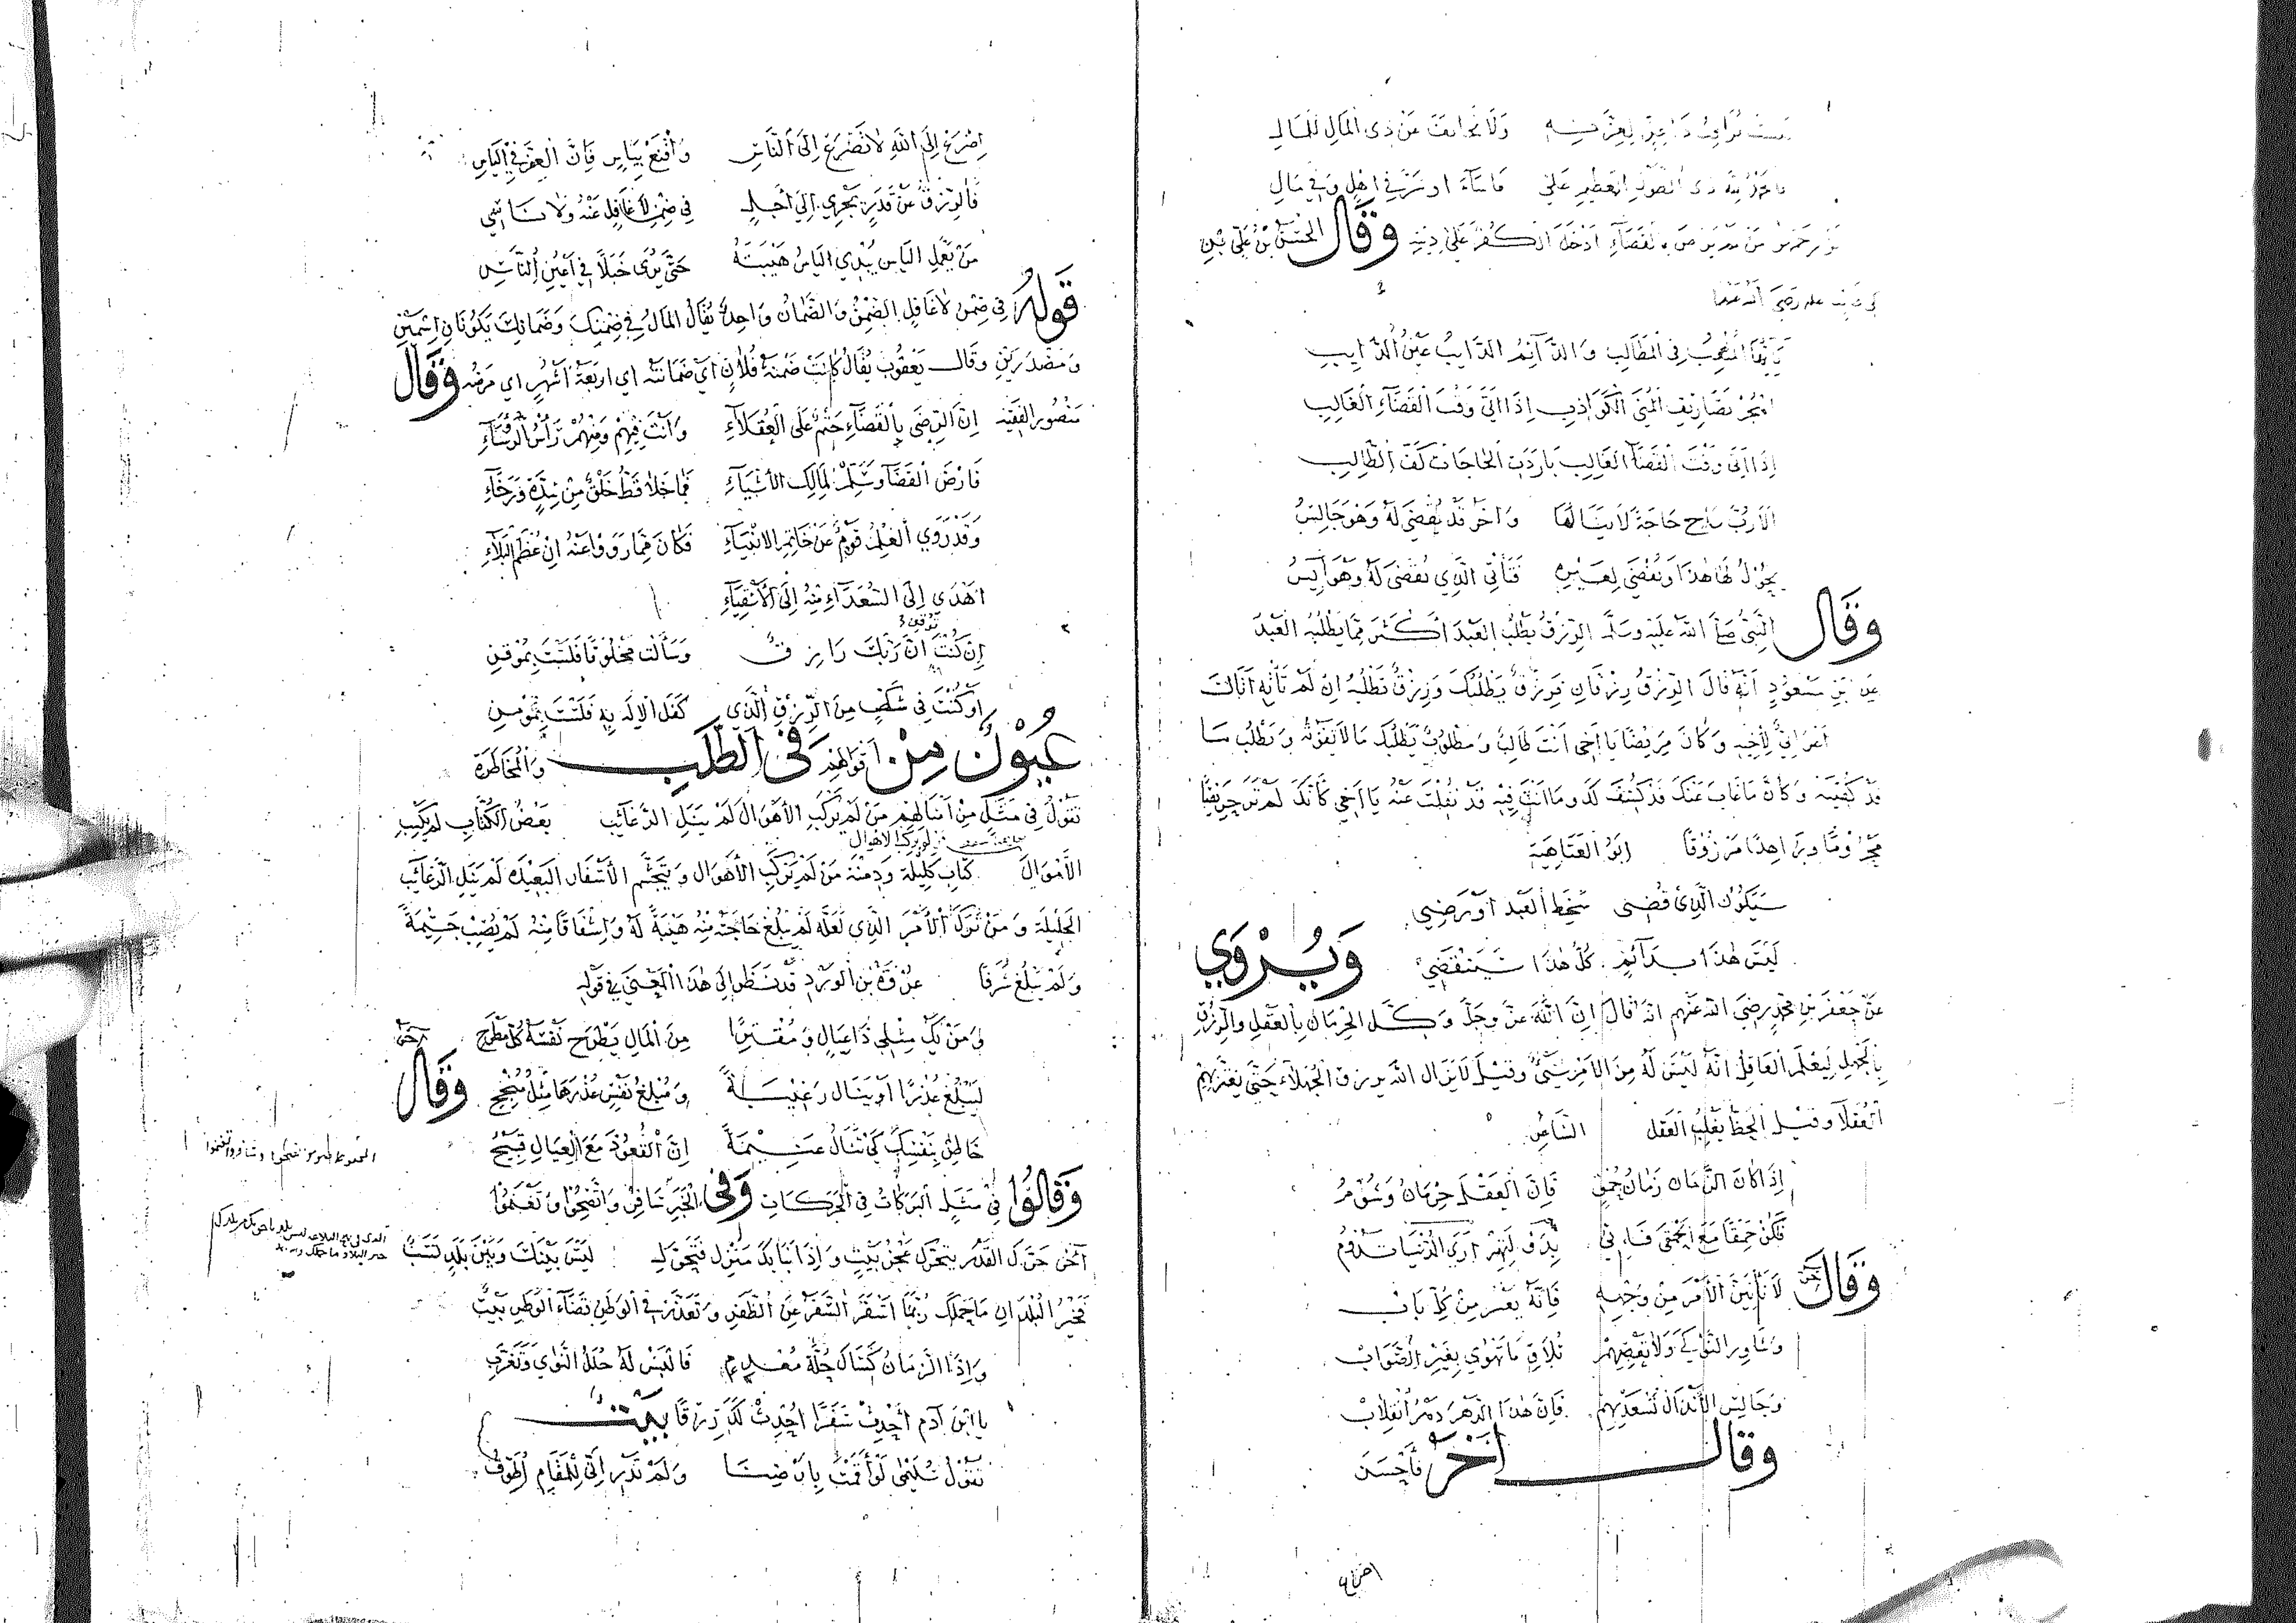 وَلَا تخَلفت عَن ذى المَالِ للمَالِ
ذى الطَّوْلِ العَظِيمِ عَلَى مَا شَآءَ او سَرَّ فى اهْلٍ وَفى مَالِ
مَنْ لَمْ يَرْضَ بالقَضَآءِ ادْخَلَ الكُفْرَ عَلَى دِينِهِ وَقَال الحُسَيْنُ بْنُ عَلِيّ بْنِ
رَضِىَ اللهُ عَنْهُمَا
يَأَيُّهَا المُتْعَبُ فِى المَطَالِبِ وَالدَّآئِمُ الدَّايبُ عَيْنُ الدَّايبِ
المُنَى الكَوَاذِبِ اِذَا اتَى وَقْتُ القَضَآءِ الغَالِبِ
اِذَا اتَى وَقْتُ القَضَآءِ الغَالِبِ بَادَرَتِ الحَاجَاتُ كَفَّ الطَّالِبِ
اَلَا رُبَّ رَاجٍ حَاجَةً لَا يَنَالُهَا وَآخَرُ قَدْ تُقْضَى لَهُ وَهْوَ جَالِسُ
يَجُوْلُ لَهَا هٰذَا وَتُقْضَى لِغَيْرِهِ فَتَأتِى الَّذِي تُقْضَى لَهُ وَهْوَ آيِسُ
وَقَال النَّبِىُّ صَلَّى اللهُ عَلَيْهِ وَسَلَّمَ الرِّزْقُ يَطْلُبُ العَبْدَ اَكْثَرَ مِمَّا يَطْلُبُهُ العَبْدُ
عَن بْنِ مَسْعُوْدٍ اَنَّهُ قَالَ الرِّزْقُ رِزْقَانِ فَرِزْقٌ يَطْلُبُكَ وَرِزْقٌ تَطْلُبُهُ اِنْ لَمْ تَأْتِهِ اَتَاكَ
اَعْرَابِىٌّ لِأخِيْهِ وَكَانَ حَرِيْصًا يَا اَخِى اَنْتَ طَالِبٌ وَمَطْلُوبٌ يَطْلُبُكَ مَا لَا تَفُوْتُهُ وَتَطْلُبُ مَا
قَدْ كُفِيْتَهُ وَكَأنَّ مَا غَابَ عَنْكَ قَدْ كُشِفَ لَكَ وَمَا اَنْتَ فِيْهِ قَدْ نُقِلْتَ عَنْهُ يَا اَخِى كَأَنَّكَ لَمْ تَرَ حَرِيْصًا
مَحْرُوْمًا وَزَاهِدًا مَرْزُوْقًا ابُو العَتَاهِيَةِ
سَيَكُونُ الَّذِى قُضِى سَخِطَ العَبْدُ اَوْ رَضِي
لَيْسَ هٰذَا بِدَآئِمٍ كُلُّ هٰذَا سَيَنْقَضِي وَيُرْوَي
عَنْ جَعْفَرِ بْنِ مُحَمَّدٍ رَضِىَ اللهُ عَنْهُمِ انَّهُ قَالَ اِنَّ اللهَ عَزَّ وَجَلَّ وَكَّلَ الحِرْمَانَ بِالعَقْلِ وَالرِّزْقَ
بِالجَهْلِ لِيَعْلَمَ العَاقِلُ انَّهُ لَيْسَ لَهُ مِنَ الأمْرِ شَىْءٌ وَقِيْلَ لَا يَزَالُ اللهُ يَرزق الجُهَلَاءَ حَتَّى يَغْتَرَّ بِهِمْ
العُقَلآ وَقِيْلَ الحَظُّ يَغْلِبُ العَقْلَ الشَّاعِرُ
اِذَا كَانَ الزَّمَانُ زَمَانُ حُمْقٍ فَاِنَّ العَقْلَ حِرْمَانٌ وَشُوْمُ
فَكُنْ حَمِقًا مَعَ الحَمْقَى فَاِنِّى أرَى الدُّنْيَا بِدَوْلَتِهِمْ تَدُوْمُ
وَقَالَ آخر لَا تَأْتِيَنَّ الأَمْرَ مِنْ وَجْهِهِ فَاِنَّهُ يَعْسُرُ مِنْ كُلِّ بَابْ
وَشَاوِرِ النَّوْكَى وَلَا تَعْصِهِمْ تُلَاقِ مَا تَهْوَى بِغَيْرِ الصَّوَابْ
وَجَالِسِ الأَنْذَالَ تَسْعَدْ بِهِمْ فَاِنَّ هٰذَا الدَّهْرَ دَهْرُ انْقِلَابْ
وَقَالَ آخَرُ فَأَحْسَنَ
اِضْرَعْ اِلَى اللهِ لَا تَضْرَعْ اِلَى النَّاسِ وَاقْنَعْ بِيَاسٍ فَاِنَّ العِزَّ فِى اليَاسِ
فَالرِّزْقُ عَنْ قَدَرٍ يَجْرِي اِلَى اَجَلٍ فِى ضِمْنِ لَا غَافِلٍ عَنْهُ وَلَا نَاسِي
مَنْ يَعْمَلِ اليَاسَ يُبْدِي اليَاسُ هَيْبَتَهُ حَتَّى يُرَى جَبَلًا فِى اَعْيُنِ النَّاسِ
قَوْلُهُ فِى ضِمْنِ لَا غَافِلٍ الضِّمْنُ وَالضَّمَانُ وَاحِدٌ يُقَالُ المَالُ فِى ضِمْنِكَ وَضَمَانِكَ يَكُوْنَانِ اِسْمَيْنِ
وَمَصْدَرَيْنِ وَقَالَ يَعْقُوْبُ يُقَالُ كَانَتْ ضَمْنَةُ فُلَانٍ اَيْ ضَمَانَتُهُ اى اَرْبَعَةَ اَشْهُرٍ اى مَرَضُهُ وَقَال
مَنْصُور الفَقِيْه اِنَّ الرِّضَى بِالقَضَآءِ حَتْمٌ عَلَى العُقَلَآءِ وَاَنْتَ فِيْهِمْ وَمِنْهُمْ رَأْسُ الرُّؤَسَآءِ
فَارْضَ القَضَآ وَسَلِّمْ لِمَالِكِ الأَشْيَآءِ فَمَا خَلَا قَطُّ خَلْقٌ مِنْ شِدَّةٍ وَرَخَآءِ
وَقَدْ رَوَي العِلْمَ قَوْمٌ عَنْ خَاتَمِ الانْبِيَآءِ فَكَانَ مِمَّا رَوَوْا عَنْهُ اِنَّ عُظْمَ البَلَآءِ
اَهْدَى اِلَى السُّعَدَآءِ مِنْهُ اِلَى الأَشْقِيَآءِ
تُوقِنُ
اِنْ كُنْتَ اَنَّ رَبَّكَ رَازِقٌ وَسَأَلْتَ مَخْلُوْقًا فَلَسْتَ بِمُوْقِنِ
اَوْ كُنْتَ فِى شَكٍّ مِنَ الرِّزْقِ الَّذِي كَفَلَ الإِلَهُ بِهِ فَلَسْتَ بِمُؤْمِنِ
عُيُوْنٌ مِنْ اَقْوَالِهِمْ فِى الطَّلَبِ وَالمُخَاطَرَةِ
تَقُوْلُ فِى مَثَلٍ مِنْ اَمْثَالِهِمْ مَنْ لَمْ يَرْكَبِ الأَهْوَالَ لَمْ يَنَلِ الرَّغَآئِبَ بَعْضُ الكُتَّابِ لَمْ يَكْسِبِ
لم يركب الاهوال
الأَمْوَالَ كِتَابِ كَلِيْلَةَ وَدِمْنَةَ مَنْ لَمْ يَرْكَبِ الأَهْوَالَ وَيَتَجَشَّمِ الأَسْفَارَ البَعِيْدَةَ لَمْ يَنَلِ الرَّغَآئِبَ
الجَلِيْلَةَ وَمَنْ تَرَكَ الأَمْرَ الَّذِي لَعَلَّهُ لَمْ يَبْلُغْ حَاجَتَهُ مِنْهُ هَيْبَةً لَهُ وَاِشْفَاقًا مِنْهُ لَمْ يُصِبْ جَسِيْمَةً
وَلَمْ يَبْلُغْ شَرَفًا عُرْوَةُ بْنُ الوَرْدِ قَدْ نَظَرَ اِلَى هٰذَا المَعْنَى فِى قَوْلِهِ
وَمَنْ يَكُ مِثْلِى ذَا عِيَالٍ وَمُقْتِرًا مِنَ المَالِ يَطْرَحْ نَفْسَهُ كُلَّ مَطْرَحِ
لِيَبْلُغَ عُذْرًا اَوْ يَنَالَ رَغِيْبَةً وَمُبْلِغُ نَفْسٍ عُذْرَهَا مِثْلُ مُنْجِحِ وَقَال آخَر
خَاطِرْ بِنَفْسِكَ كَىْ تَنَالَ غَنِيْمَةً اِنَّ القُعُوْدَ مَعَ العِيَالِ قَبِيْحُ
وَقَالُوْا فِى مَثَلٍ البَرَكَاتُ فِى الحَرَكَاتِ وَفِى الخَبَرِ سَافِرُوْا تَصِحُّوْا وَتَغْنَمُوْا
آخَرُ حَرِّكِ القَدَرَ يَتَحَرَّكْ عَجُزُ بَيْتٍ وَاِذَا نَبَا بِكَ مَنْزِلٌ فَتَحَوَّلِ لَيْسَ بَيْنَكَ وَبَيْنَ بَلَدٍ نَسَبٌ
فَخَيْرُ البُلْدَانِ مَا حَمَلَكَ رُبَّمَا اَسْفَرَ السَّفَرُ عَنِ الظَّفَرِ وَتَعَذَّرَ فِى الوَطَنِ قَضَآءُ الوَطَرِ بَيْتٌ
وَاِذَا الزَّمَانُ كَسَاكَ حُلَّةَ مُعْدِمٍ فَالْبَسْ لَهُ حُلَلَ النَّوَى وَتَغَرَّبِ
يَا ابْنَ آدَم اَحْدِثْ سَفَرًا اُحْدِثْ لَكَ رِزْقًا بَيْتٌ
تَقُوْلُ سُلَيْمَى لَوْ اَقَمْتَ بِاَرْضِنَا وَلَمْ تَدْرِ اَنِّى لِلمُقَامِ اُطَوِّفُ